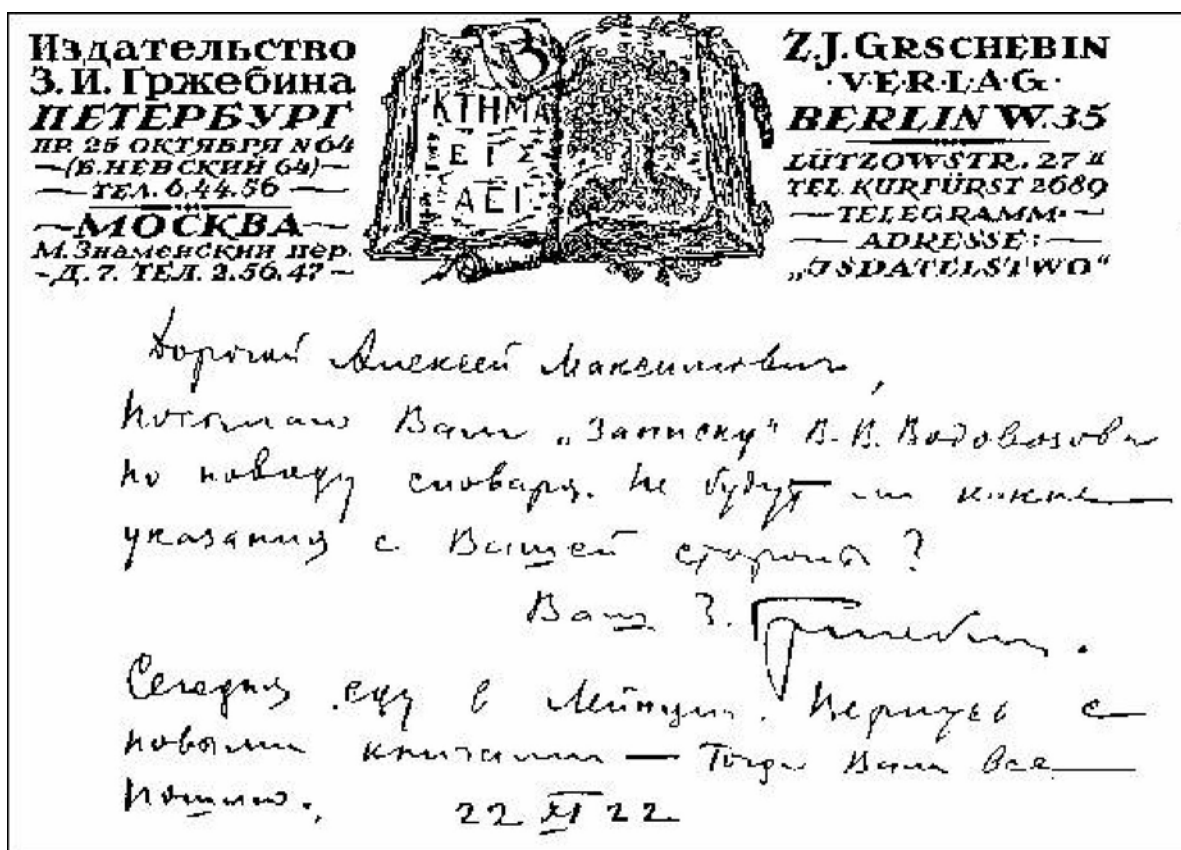 Издательство
З. И. Гржебина
ПЕТЕРБУРГ
ПР. 25 ОКТЯБРЯ N 64
—(Б. НЕВСКИЙ 64)—
— ТЕЛ. 6.44.56 —
—МОСКВА—
М. Знаменский пер.
- Д. 7. ТЕЛ. 2.56.47 -
З
ΚΤΗΜΑ
ΕΙΣ
ΑΕΙ
Z. J. GRSCHEBIN
· V·E·R·L·A·G ·
BERLIN W. 35
LÜTZOWSTR. 27 II
TEL KURFÜRST 2689
— TELEGRAMM- —
— ADRESSE: —
„ISDATELSTWO“
Дорогой Алексей Максимович,
Посылаю Вам „Записку“ В. В. Водовозова
по поводу словаря. Не будут ли какие
указания с Вашей стороны?
Ваш З. Гржебин.
Сегодня еду в Лейпциг. Вернусь с
новыми книгами — Тогда Вам все
пошлю.
22 XI 22